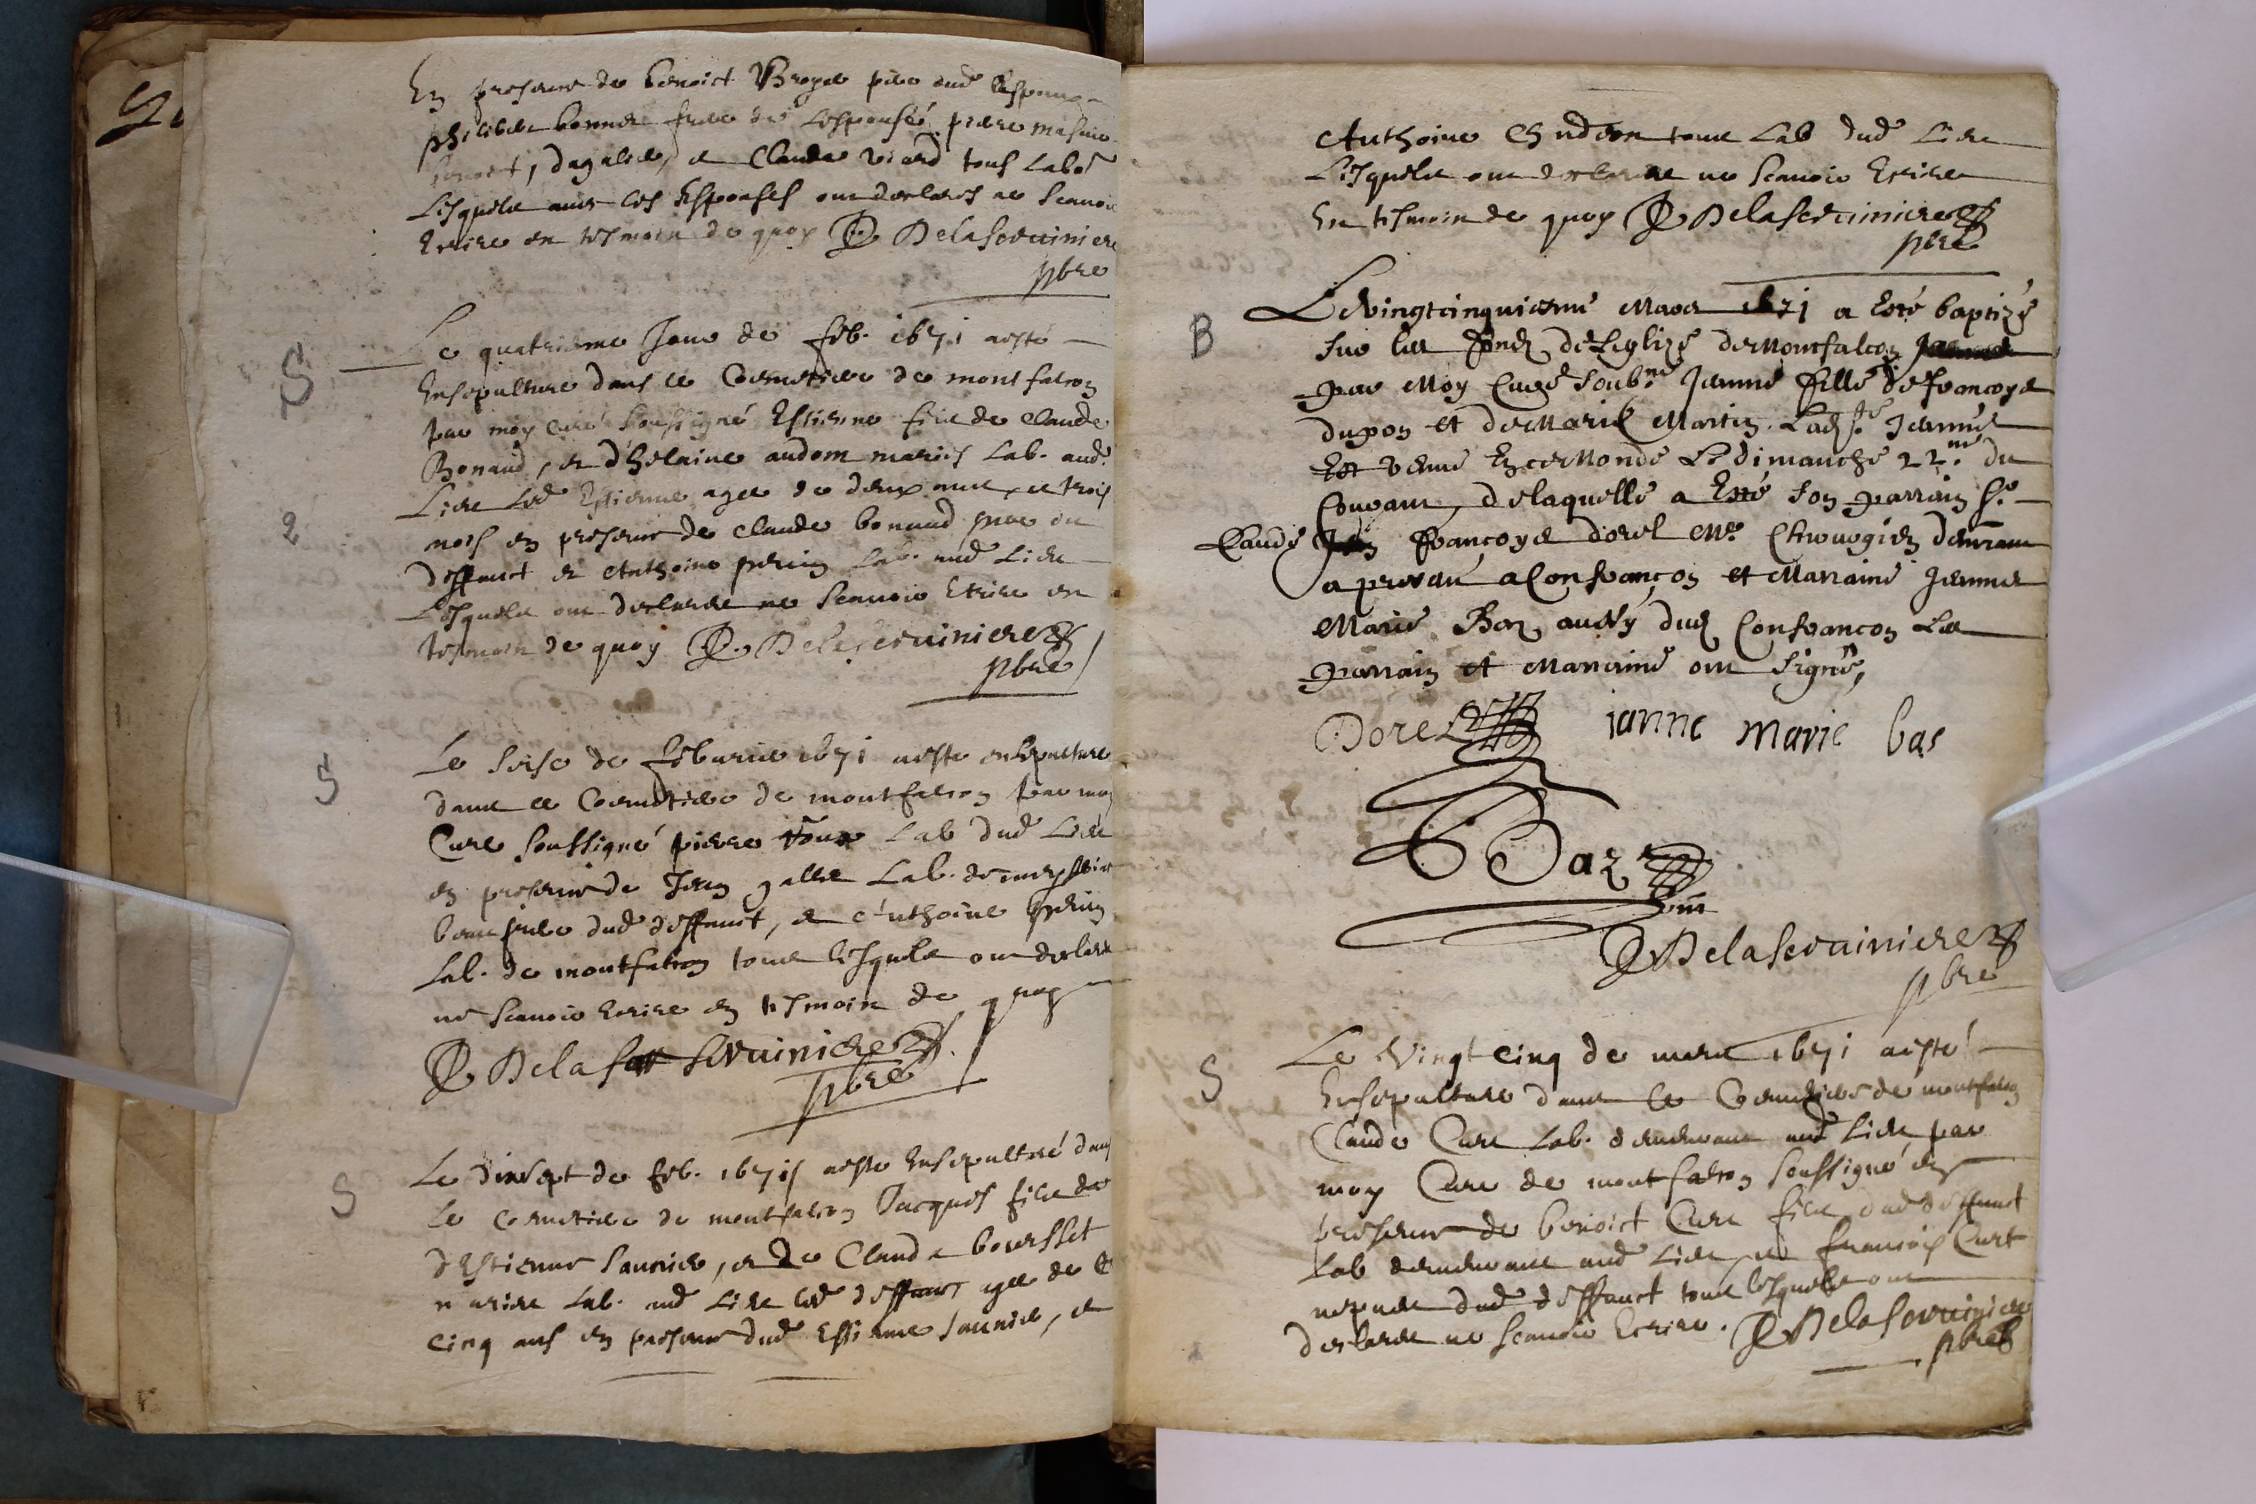 En presence de benoict Broye pere dud Espoux
philibert bonnet frere de Lespousée, pierre
benoist, dagallier, et Claude viard tous Labo.r
Lesquels avec les Espouses ont declares ne scavoir
Escrire en tesmoin de quoy D. Delaservinniere
pbre
S
Le quatriesme Jour de feb. 1671 a esté
Ensepulturé dans le Coemetiere de montfalcon
par moy curé Soussigné Estienne fils de Claude
Bonaud, et d'Helaine andom mariés Lab. aud.
Lieu Led Estienne agee de deux ans et trois
2
mois en presence de Claude bonaud pere du
deffunct et Anthoine perrin Lab. aud Lieu
Lesquels ont declarés ne scavoir Escrire en
tesmoin de quoy D. Delaservinniere
pbre
S
Le seise de feburier 1671 a este ensepulturé
dans le Coemetiere de montfalcon par moy
Curé soussigné pierre Lab dud Lieu
en presence de Jean gallet Lab. de
beau frere dud deffunct, et Anthoine perrin
Lab. de montfalcon tous lesquels ont declaré
ne scavoir escrire en tesmoin de quoy
D Delas servinniere
pbre
S
Le dixsept de feb. 1671 a este Ensepulturé dans
Le Coemetiere de montfalcon Jacques fils de
d'Estienne Saunier, et de Clauda boursset
mariés Lab. aud Lieu led deffunct agee de
cinq ans en presence dud Estienne saunier, et
Anthoine tous Lab dud Lieu
Lesquels ont declarés ne scavoir Escrire
En tesmoin de quoy D Delaservinniere
pbre
B
Le Vingtcinquiesme Mars 1671 a Esté baptizé
sur les fonds de Leglize de Montfalcon
par Moy Curé soub.né Jeanne fille de francoys
dupon et de Marie Martin. Lad.te Jeanne
Est venue En ce Monde Le dimanche 22.me du
Couvant, de laquelle a Esté son parrain S.r
Claude francoys dorel M.e Chirurgien demeurant
a present a Confrançon et Marraine Jeanne
Marie Bas aussy dud Confrancon Les
parrain et Marraine ont signé,
Dorel janne marie bas
Baz
D Delaservinniere
pbre
S
Le Vingt cinq de mars 1671 a esté
Ensepulturé dans le Coemetiere de montfalcon
Claude Curt Lab. demeurant aud Lieu par
moy Curé de montfalcon soussigné en
presence de benoict Curt fils dud deffunct
Lab demeurant aud Lieu et francois Curt
nepveu dud deffunct tous lesquels ont
declarés ne scavoir Escrire. D Delaservinniere
pbre